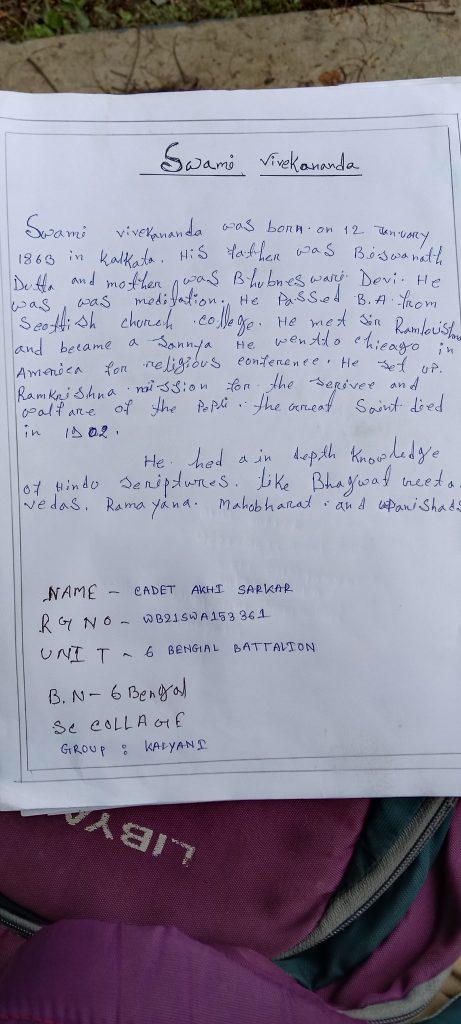 Swami Vivekananda
Swami vivekananda was born on 12 January
1863 in Kalkata. His father was Biswanath
Dutta and mother was Bhubneswari Devi. He
was was meditation. He Passed B.A. from
Scottish church college. He met Sir Ramkrishna
and became a Sannya He wentto chicago in
America for religious conference. He set up.
Ramkrishna mission for the serivce and
walfare of the Pepli. the great Saint died
in 1902.
He had a in depth Knowledge
of Hindu Scriptures. like Bhagwat Geeta.
vedas. Ramayana. Mahobharat. and upanishads
NAME - CADET AKHI SARKAR
RG NO - WB21SWA153361
UNIT - 6 BENGIAL BATTALION
B.N - 6 Bengal
Sc COLLAGE
GROUP : KALYANI
LIBYA